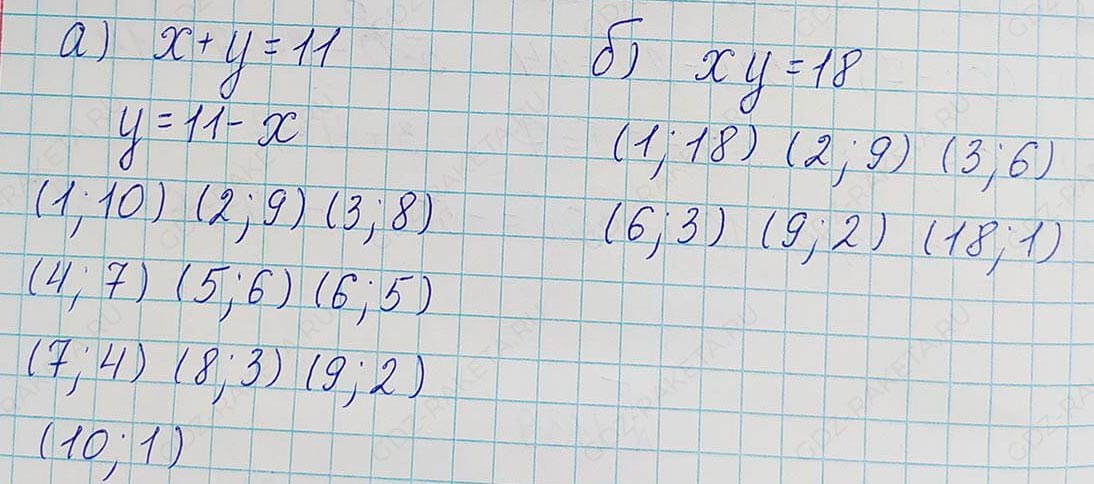 а) x + y = 11
y = 11 - x
(1; 10) (2; 9) (3; 8)
(4; 7) (5; 6) (6; 5)
(7; 4) (8; 3) (9; 2)
(10; 1)
б) xy = 18
(1; 18) (2; 9) (3; 6)
(6; 3) (9; 2) (18; 1)
GDZ-RAKETA.RU